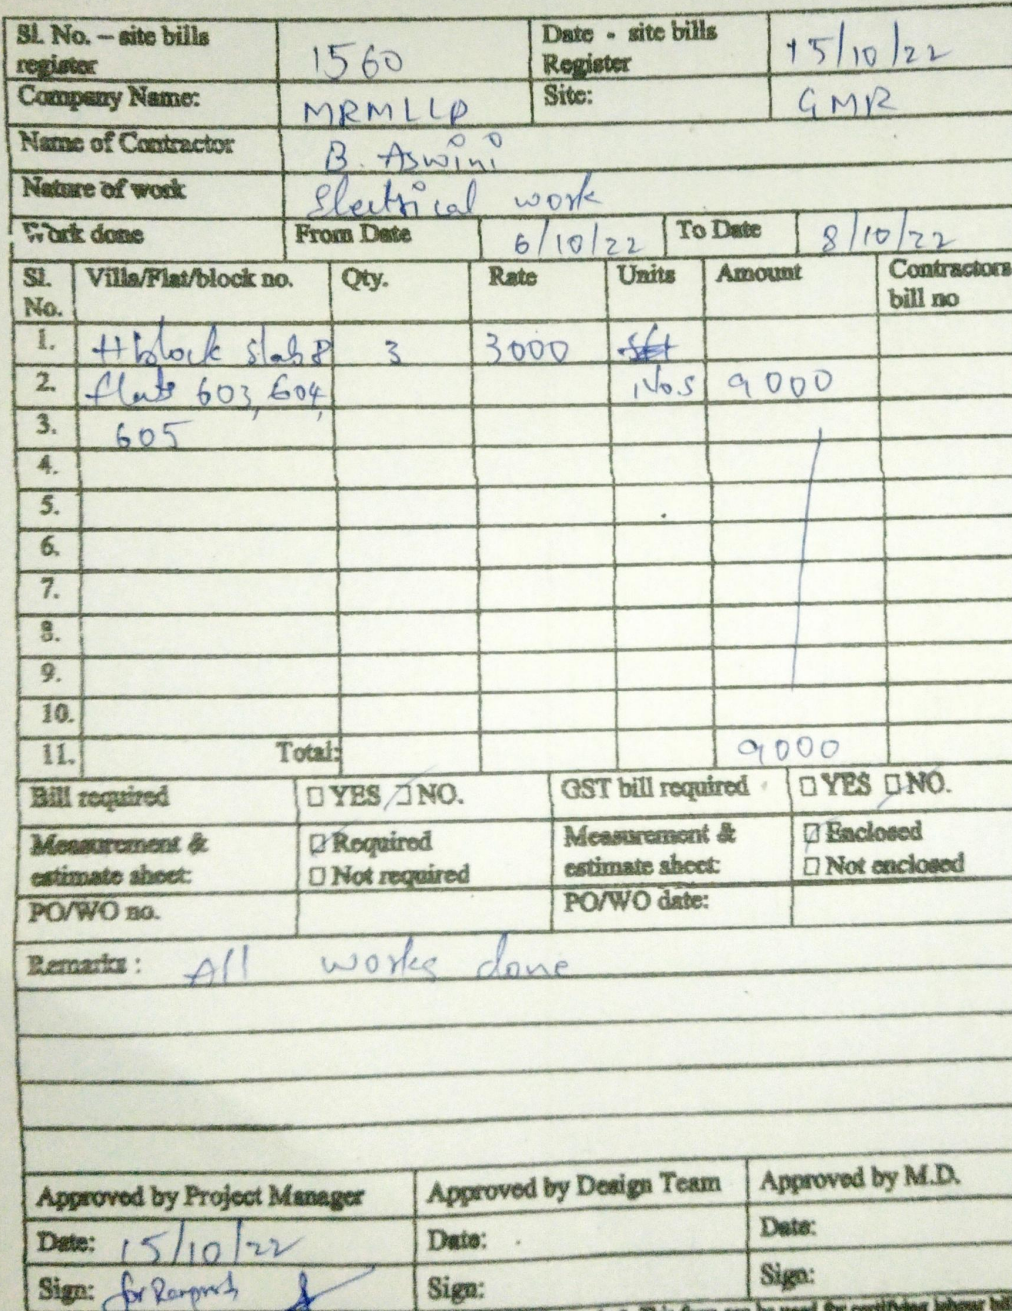 Sl. No. – site bills register 1560 Date - site bills Register 15/10/22
Company Name: MRMLLP Site: GMR
Name of Contractor B. Aswini
Nature of work Electrical work
Work done From Date 6/10/22 To Date 8/10/22
Sl. No. Villa/Flat/block no. Qty. Rate Units Amount Contractors bill no
1. H block slab 8 3 3000
2. flats 603, 604, Nos 9000
3. 605
4.
5.
6.
7.
8.
9.
10.
11. Total: 9000
Bill required YES NO. GST bill required YES NO.
Measurement & estimate sheet: Required Not required Measurement & estimate sheet: Enclosed Not enclosed
PO/WO no. PO/WO date:
Remarks : All works done
Approved by Project Manager Approved by Design Team Approved by M.D.
Date: 15/10/22 Date: Date:
Sign: for Sign: Sign: